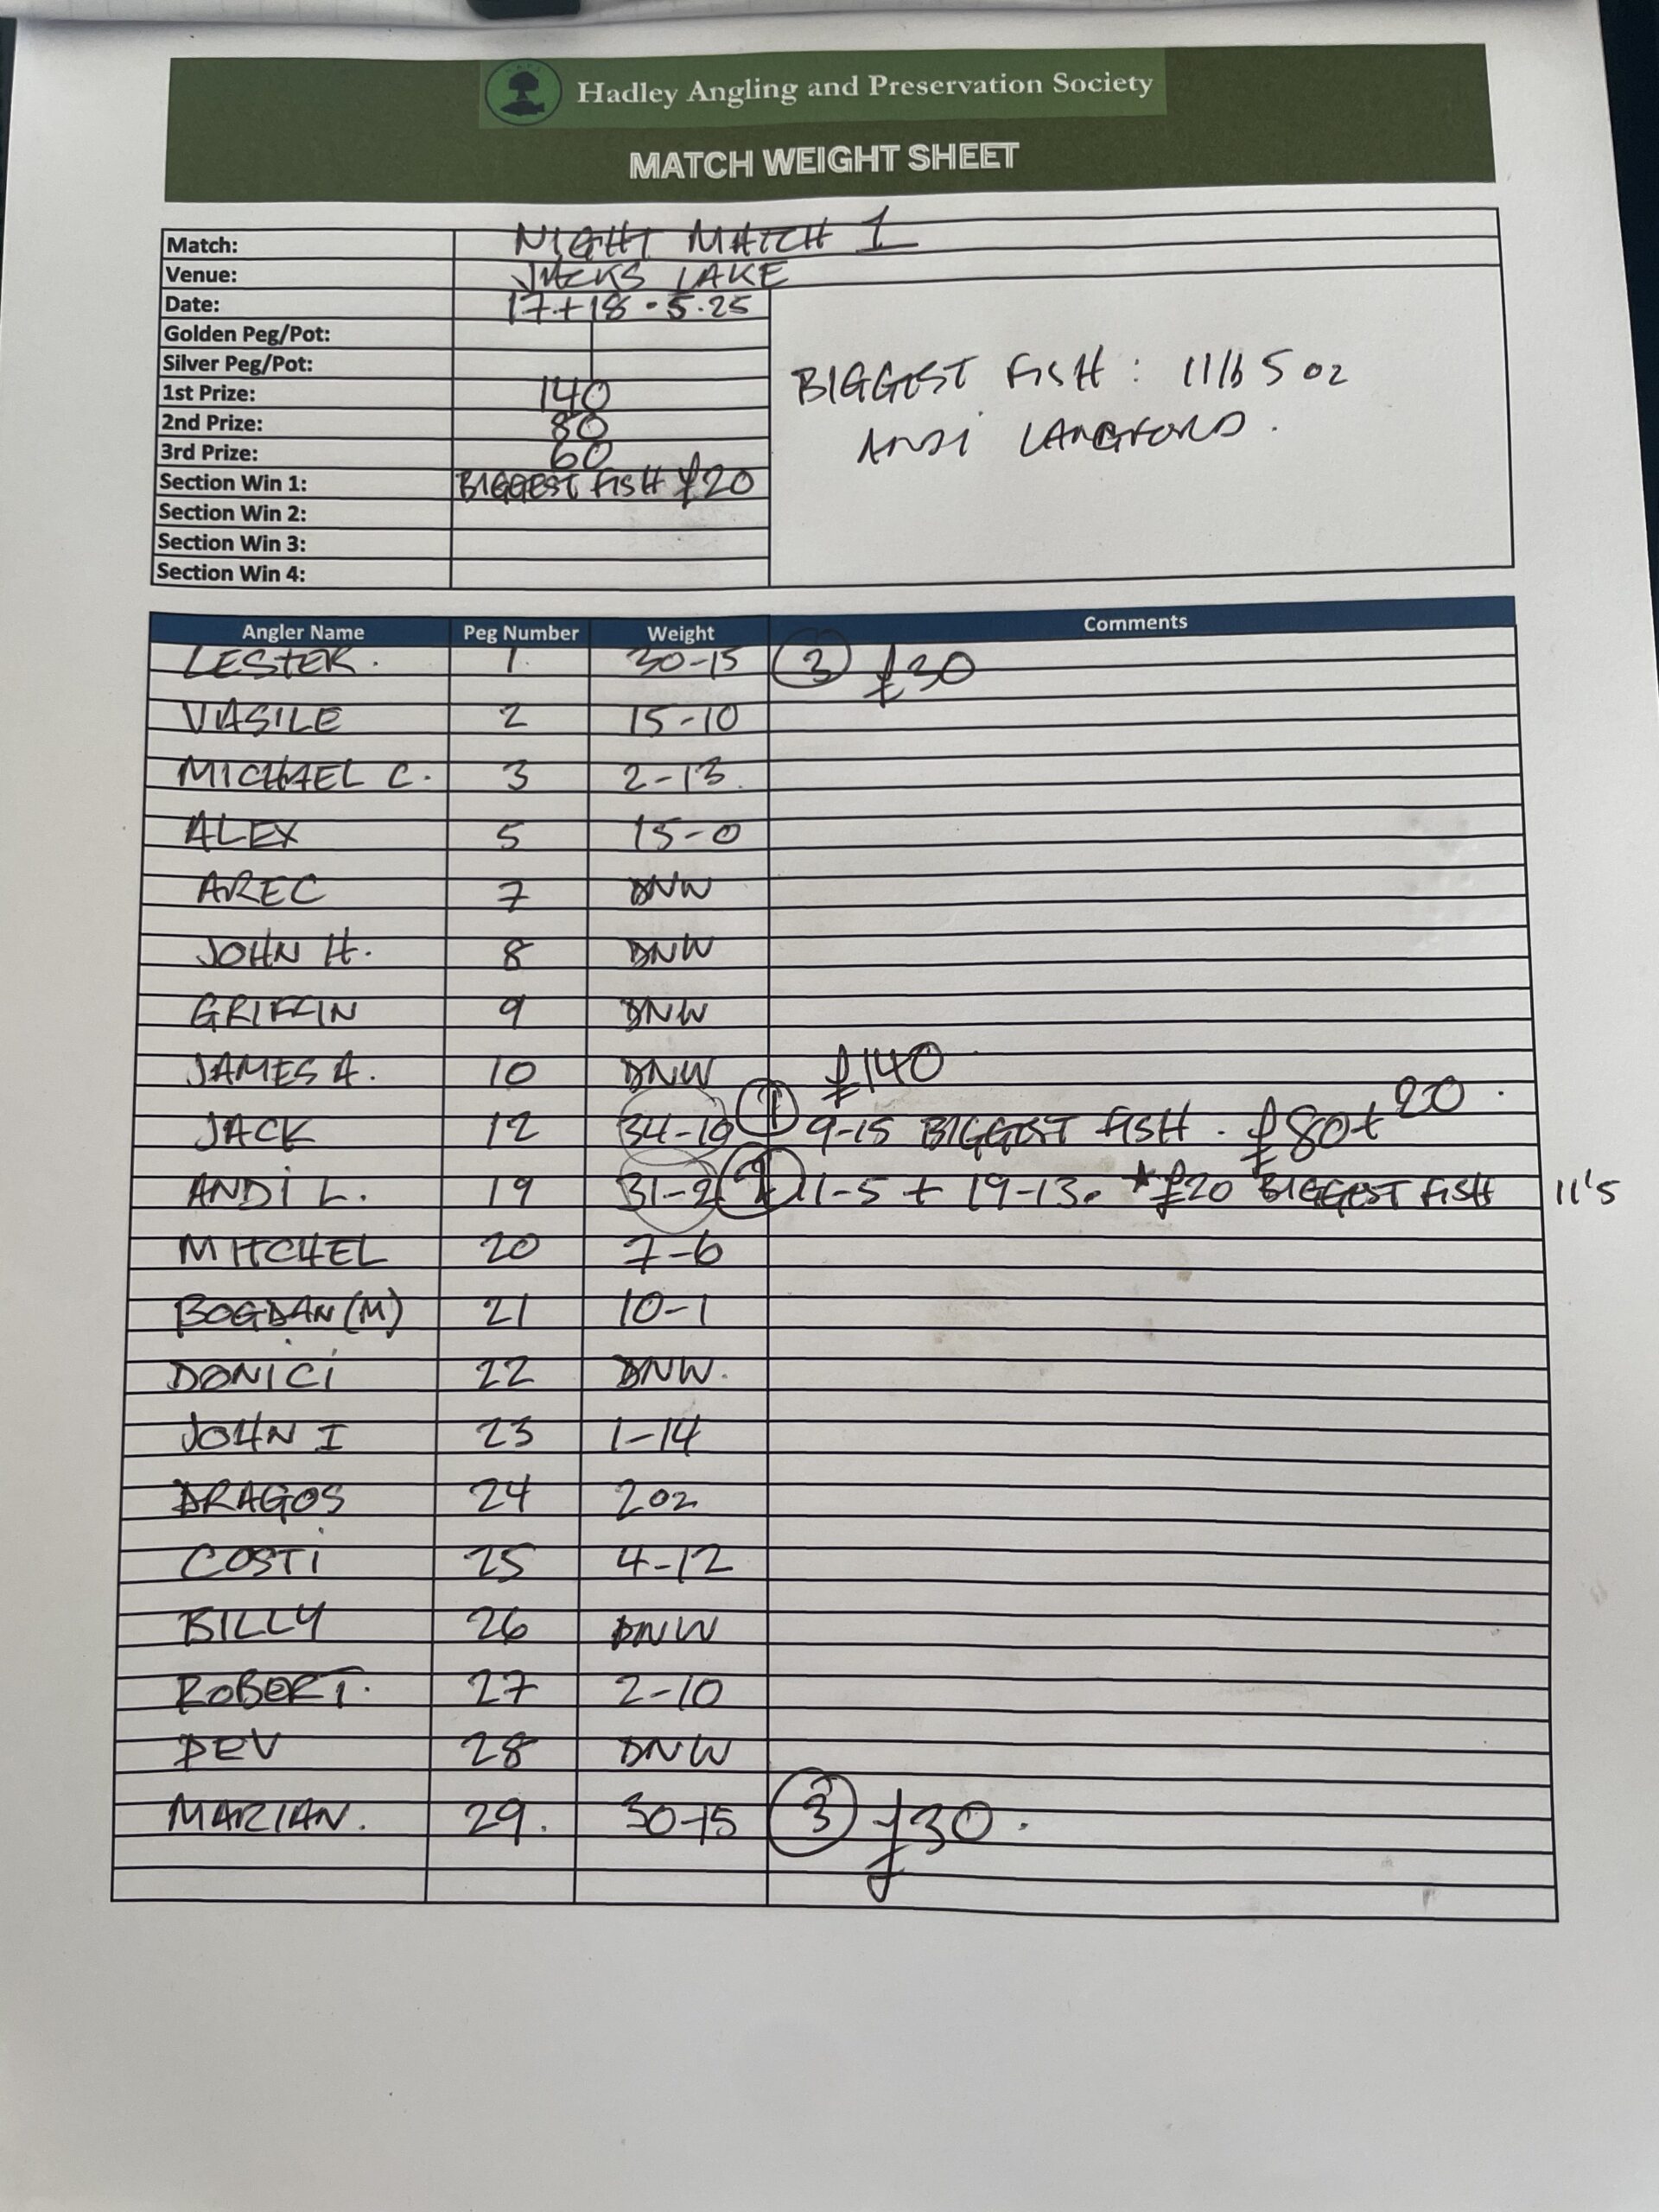 Hadley Angling and Preservation Society
MATCH WEIGHT SHEET
Match: NIGHT MATCH 1
Venue: JACKS LAKE
Date: 17+18.5.25
Golden Peg/Pot:
Silver Peg/Pot:
1st Prize: 140
2nd Prize: 80
3rd Prize: 60
Section Win 1: BIGGEST FISH £20
Section Win 2:
Section Win 3:
Section Win 4:
BIGGEST FISH: 11lb 5oz
ANDI LANGFORD.
Angler Name Peg Number Weight Comments
LESTER. 1. 30-15 3 £30
VASILE 2 15-10
MICHAEL C. 3 2-13.
ALEX 5 15-0
AREC 7 DNW
JOHN H. 8 DNW
GRIFFIN 9 DNW
JAMES A. 10 DNW £140
JACK 12 34-10 1 9-15 BIGGEST FISH. £80+20.
ANDI L. 19 31-2 2 11-5 + 19-13. *£20 BIGGEST FISH 11'5
MITCHEL 20 7-6
BOGDAN(M) 21 10-1
DONICI 22 DNW.
JOHN I 23 1-14
DRAGOS 24 2oz
COSTI 25 4-12
BILLY 26 DNW
ROBERT. 27 2-10
DEV 28 DNW
MARIAN. 29. 30-15 3 £30.